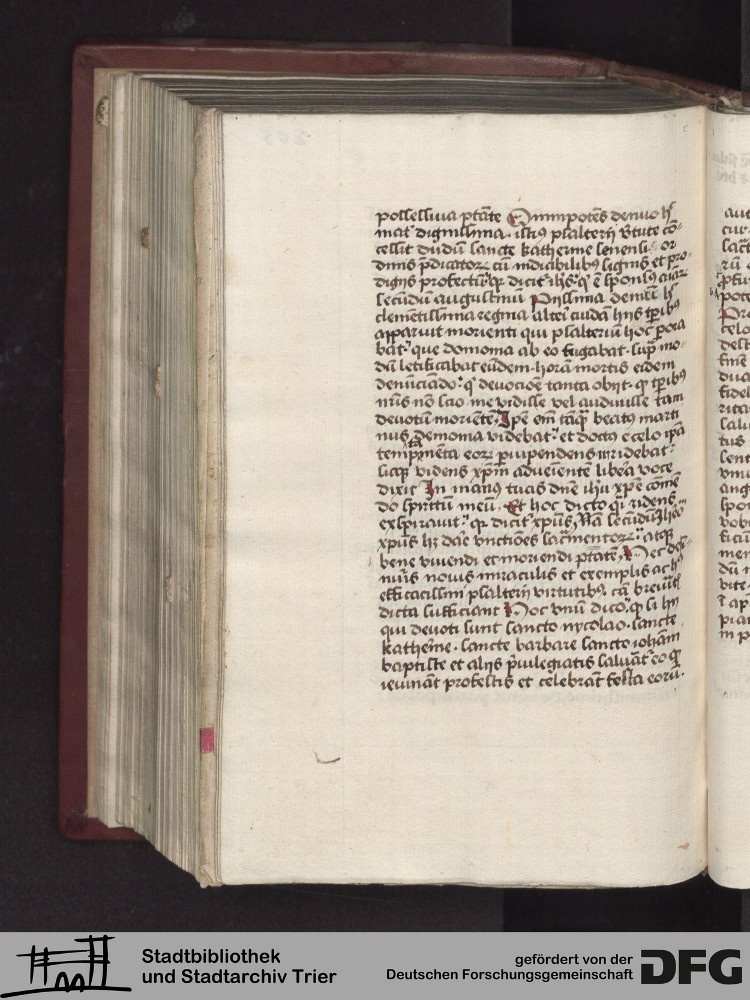 possessiua ptāte Omnipotēs denuo hͦ
mat͛ dignissima. istiꝰ psalterij v̄tute cō⸗
cessit dudū sancte katherine senensi. or
dinis p̄dicatoꝝ cū indicibilibꝰ signis et pro⸗
digijs
secūdū augustinū Pijssima
clementissima regina alteri cuidā hijs tp̄ibꝰ
apparuit morienti qui psalteriū hoc
bat. que demonia ab eo fugabat. sup̄ mo⸗
dū letificabat eūdem. horam mortis eidem
denūciando. qͥ deuocioē tanta obijt. qͦ tp̄ibꝰ
nr̄is nō scio me vidisse vel audiuisse tam
deuotū morientē. Ipe em̄ tāqͣ beatꝰ marti
nus demonia videbat. et docta e celo ip̄a
eoꝝ irridebat.
sicqꝫ videns xp̄m aduenientē libera voce
dixit In manꝰ tuas dn̄e ih̄u xp̄e comē
do spiritū meū. Et hoc dicto qͥ ridens
exspirauit. qꝛ dicit xpūs, Nā secūdū
xpūs hꝫ dāe vnctiōes sac̄mentoꝝ. atqꝫ
bene viuendi et moriendi ptātē, Nec
nr̄is nouis miraculis et exemplis ac
efficacissimi psalterij virtutibꝰ. tā breuit͛
dicta sufficiant Hoc vnū dico, qͦ si hij
qui deuoti sunt sancto nycolao. sancte
katherīe. sancte barbare sancto iohāni
baptiste et alijs p̄uilegiatis saluāt͛ eo qͦ
ieiunāt profestis et celebrāt festa eorū.
Stadtbibliothek
und Stadtarchiv Trier
gefördert von der
Deutschen Forschungsgemeinschaft
DFG